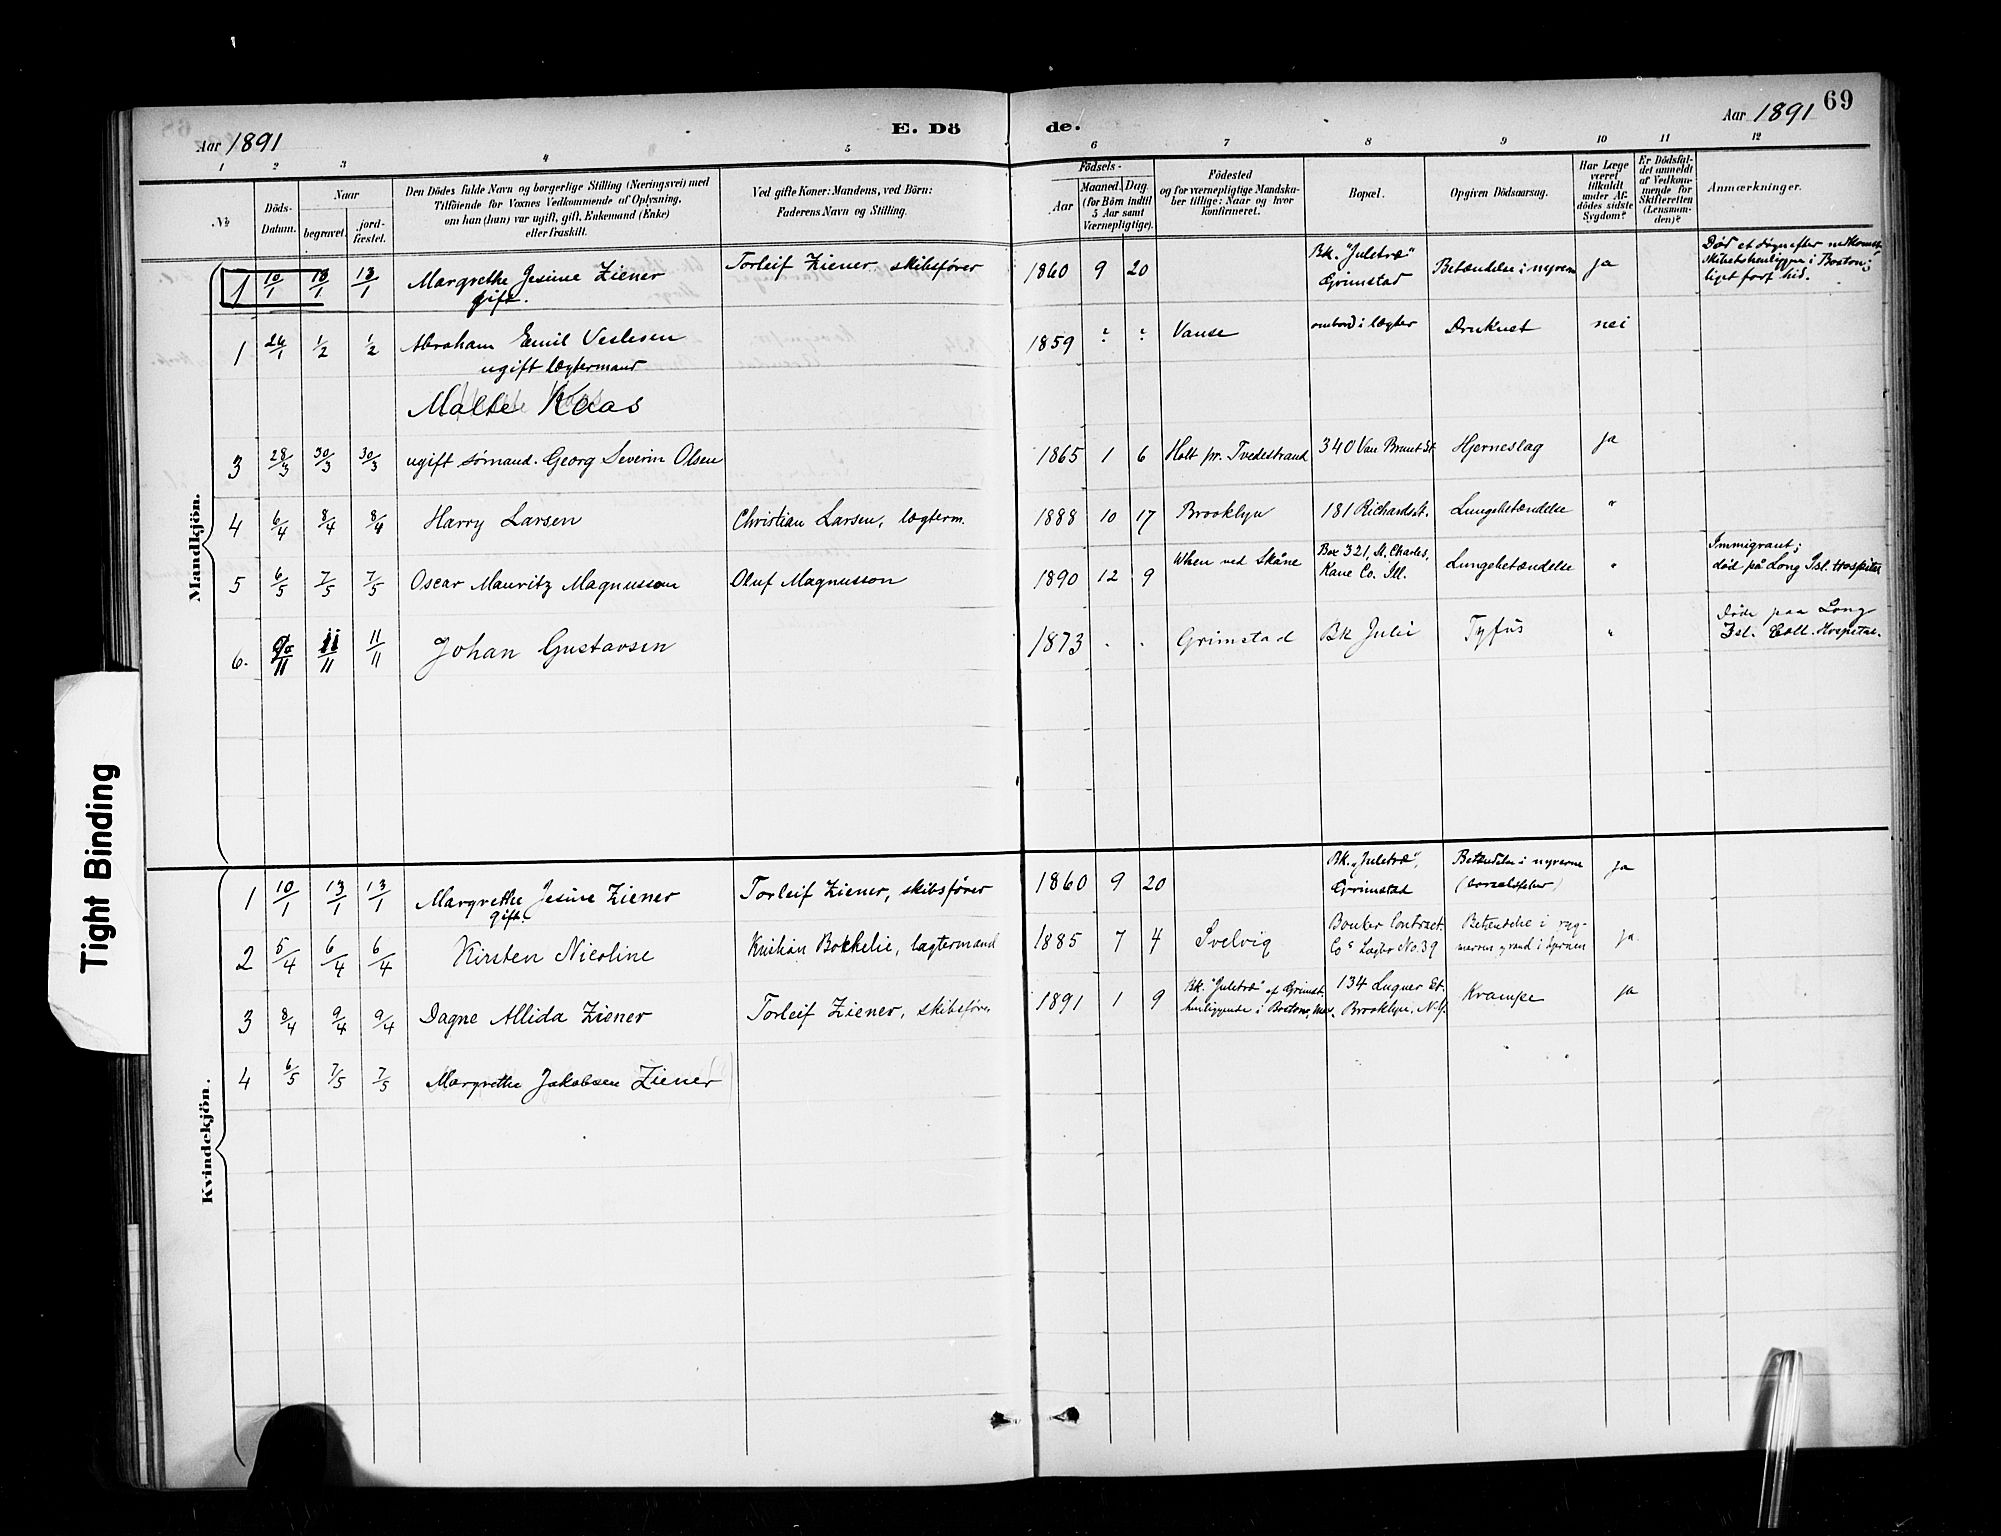 69
Aar 1891
E. Dö
de.
Aar 1891
1 2 3 4 5 6 7 8 9 10 11 12
№
Döds-Datum.
Naar
begravet.
jord-fæstet.
Den Dödes fulde Navn og borgerlige Stilling (Næringsvei) med
Tilföiende for Voxnes Vedkommende af Oplysning,
om han (hun) var ugift, gift, Enkemand (Enke)
eller fraskilt.
Ved gifte Koner: Mandens, ved Börn:
Faderens Navn og Stilling.
Födsels-
Aar
Maaned. Dag
(for Börn indtil
5 Aar samt
Værnepligtige).
Födested
og for værnepligtige Mandsku-
ber tillige: Naar og hvor
konfirmeret.
Bopæl.
Opgiven Dödsaarsag.
Har Læge
været
tilkaldt
under Af-
dödes sidste
Sygdom?
Er Dödsfal-
det anmeldt
af Vedkom-
mende for
Skifteretten
(Lensman-
den)?
Anmærkninger.
Mandkjön.
1 10/1 13/1 13/1 Margrethe Jesine Ziener Torleif Ziener, skibsfører 1860 9 20 Bk. "Juletræ" Betændelse i nyrerne ja Død et døgn efter nedkomst,
gift. Grimstad skibet henliggende i Boston;
liget ført hid.
1 24/1 1/2 1/2 Abraham Emil Veslesen 1859 ? ? Vanse ombord i lægter Druknet nei
ugift lægtermand
Malte Kaas
3 28/3 30/3 30/3 ugift sømand. Georg Severin Olsen 1865 1 6 Holt pr. Tvedestrand 340 Van Brunt St. Hjerneslag ja
4 6/4 8/4 8/4 Harry Larsen Christian Larsen, lægterm. 1888 10 17 Brooklyn 181 Richards st. Lungebetændelse "
5 6/5 7/5 7/5 Oscar Mauritz Magnusson Oluf Magnusson 1890 12 9 ved Skåne Box 321, St. Charles, Lungebetændelse " Immigrant;
Kane Co. Ill. død på Long Isl. Hospital
6. 11/11 11/11 Johan Gustavsen 1873 . . Grimstad Bk Julie Tyfus " Døde paa Long
Isl. Coll. Hospital.
Kvindekjön.
1 10/1 13/1 13/1 Margrethe Jesine Ziener Torleif Ziener, skibsfører 1860 9 20 Bk. "Juletræ", Betændelse i nyrerne ja
gift. Grimstad (barselsfeber)
2 5/4 6/4 6/4 Kirsten Nicoline Kristian Bokkelie, lægtermand 1885 7 4 Svelvig Contract. Betændelse i ryg- ja
Cos Lagter No. 39 marven
3 8/4 9/4 9/4 Dagne Allida Ziener Torleif Ziener, skibsfører 1891 1 9 Bk. "Juletræ" af Grimst. 134 Luquer St. Krampe ja
henliggende i Boston, Mas. Brooklyn, N.Y.
4 6/5 7/5 7/5 Margrethe Jakobsen Ziener
Tight Binding